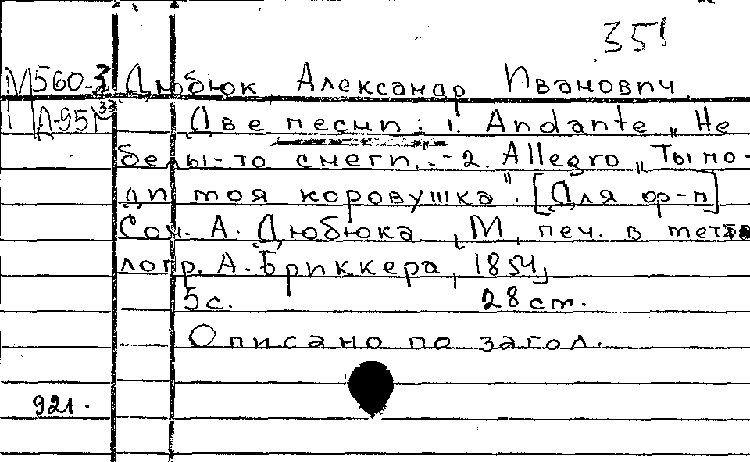 351
М560-3 Дюбюк, Александр Иванович
Д-951 Две песни: 1. Andante „Не
белы-то снеги..-2. Allegro „Ты по-
ди моя коровушка". [Для ф-п]
Соч. А. Дюбюка, М, печ. в метал
логр. А. Бриккера, 1854,
5с. 28 cm.
Описано по загол.
921.